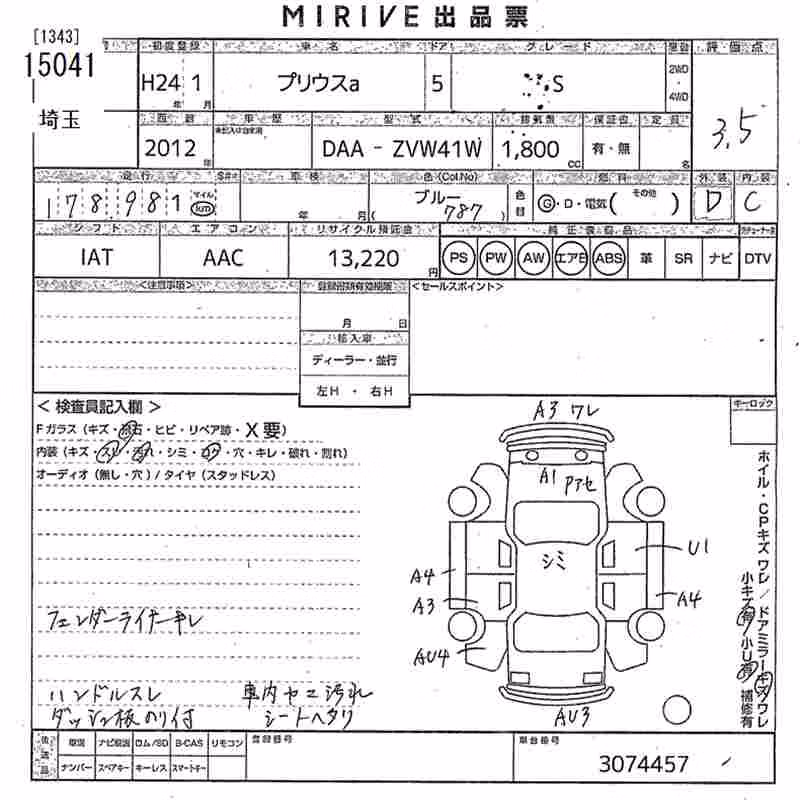 MIRIVE 出品票
[1343]
15041
埼玉
初度登録 車名 ドア グレード 駆動 評価点
H24 1 プリウスa 5 S 2WD 4WD
年 月
3.5
年 車歴 型式 排気量 保証書 定員
2012 年 DAA - ZVW41W 1,800 cc 有・無 名
走行 車検 色(Col.No) 燃料 外装 内装
178981 マイル km 年 月 ブルー ( 787 ) 色替 G・D・電気( その他 ) D C
シフト エアコン リサイクル預託金 純正装備品
IAT AAC 13,220 円 PS PW AW エアB ABS 革 SR ナビ DTV
<注意事項> <セールスポイント>
月 日
輸入車
ディーラー・並行
左H ・ 右H
< 検査員記入欄 >
キーロック
Fガラス(キズ・飛石・ヒビ・リペア跡・X要)
内装(キズ・スレ・汚れ・シミ・コゲ・穴・キレ・破れ・割れ)
オーディオ(無し・穴)/タイヤ(スタッドレス)
A3 ワレ
A1
Pアセ
シミ
U1
A4
A3
A4
AU4
AU3
ホイル・CPキズ ワレ/ドアミラーキズワレ
小キズ有 小U有 補修有
フェンダーライナーキレ
ハンドルスレ 車内ヤニ汚れ
ダッシュ板のり付 シートヘタリ
後送品 取説 ナビ取説 ロム/SD B-CAS リモコン 登録番号 車台番号
ナンバー スペアキー キーレス スマートキー
3074457